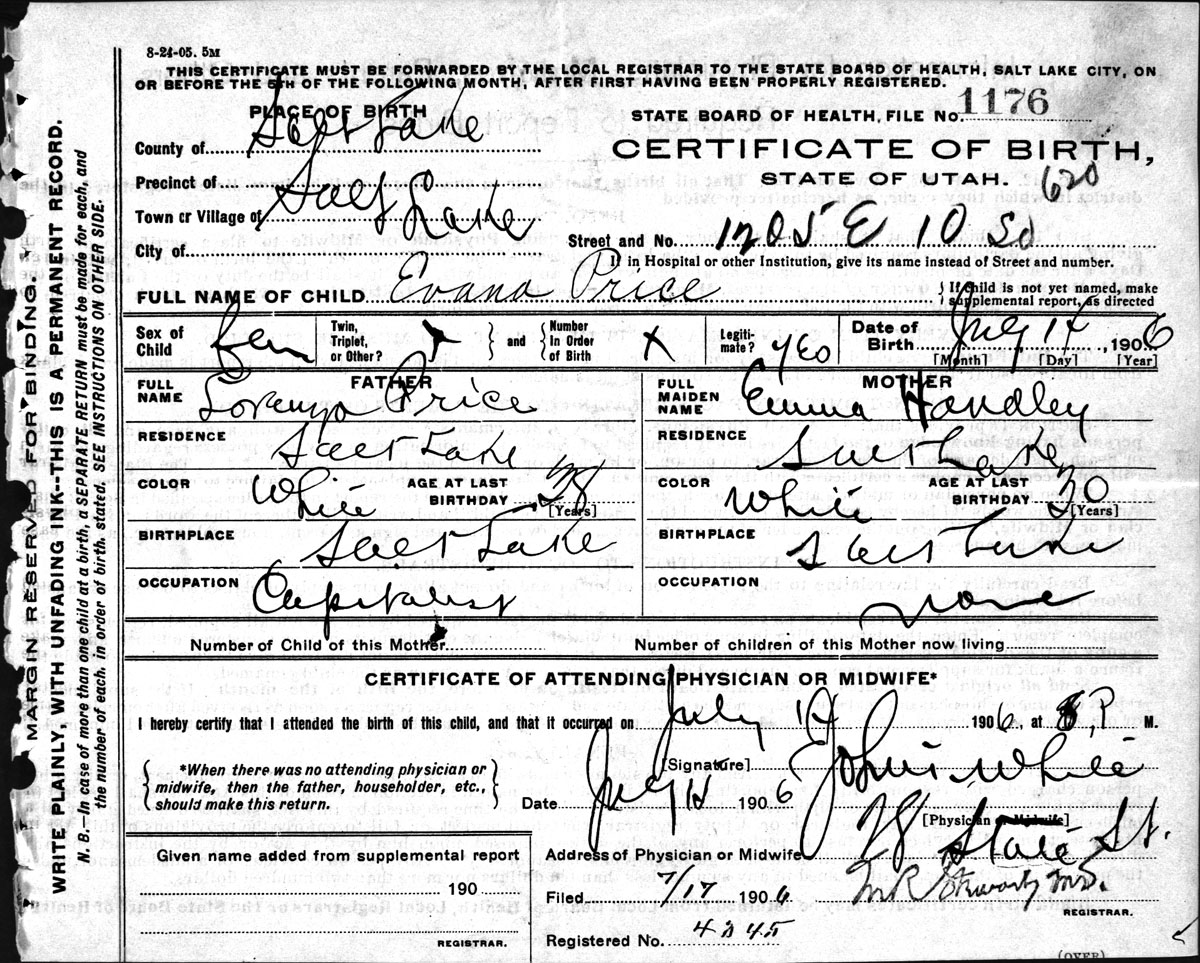 8-24-05. 5M
THIS CERTIFICATE MUST BE FORWARDED BY THE LOCAL REGISTRAR TO THE STATE BOARD OF HEALTH, SALT LAKE CITY, ON
OR BEFORE THE 5TH OF THE FOLLOWING MONTH, AFTER FIRST HAVING BEEN PROPERLY REGISTERED.
PLACE OF BIRTH
STATE BOARD OF HEALTH, FILE No. 1176
County of Salt Lake
CERTIFICATE OF BIRTH,
STATE OF UTAH. 620
Precinct of
Town or Village of Salt Lake
City of
Street and No. 1205 E 10 So
If in Hospital or other Institution, give its name instead of Street and number.
FULL NAME OF CHILD Evana Price { If Child is not yet named, make supplemental report, as directed
Sex of Child Fem Twin, Triplet, or Other? x and { Number In Order of Birth x Legitimate? yes Date of Birth July 14, 1906
[Month] [Day] [Year]
FATHER
FULL NAME Lorenzo Price
RESIDENCE Salt Lake
COLOR White AGE AT LAST BIRTHDAY [Years]
BIRTHPLACE Salt Lake
OCCUPATION Capitalist
MOTHER
FULL MAIDEN NAME Emma Handley
RESIDENCE Salt Lake
COLOR White AGE AT LAST BIRTHDAY 20 [Years]
BIRTHPLACE Salt Lake
OCCUPATION None
Number of Child of this Mother
Number of children of this Mother now living
CERTIFICATE OF ATTENDING PHYSICIAN OR MIDWIFE*
I hereby certify that I attended the birth of this child, and that it occurred on July 14 1906, at 8 P. M.
{ *When there was no attending physician or midwife, then the father, householder, etc., should make this return. }
[Signature] E John White
Date July 15 1906
[Physician or Midwife]
Address of Physician or Midwife State St.
Filed 7/17 1906 M R Stewart MD.
REGISTRAR.
Registered No. 4245
Given name added from supplemental report
190
REGISTRAR.
(OVER)
MARGIN RESERVED FOR BINDING.
WRITE PLAINLY, WITH UNFADING INK--THIS IS A PERMANENT RECORD.
N. B.—In case of more than one child at a birth, a SEPARATE RETURN must be made for each, and
the number of each, in order of birth, stated. SEE INSTRUCTIONS ON OTHER SIDE.